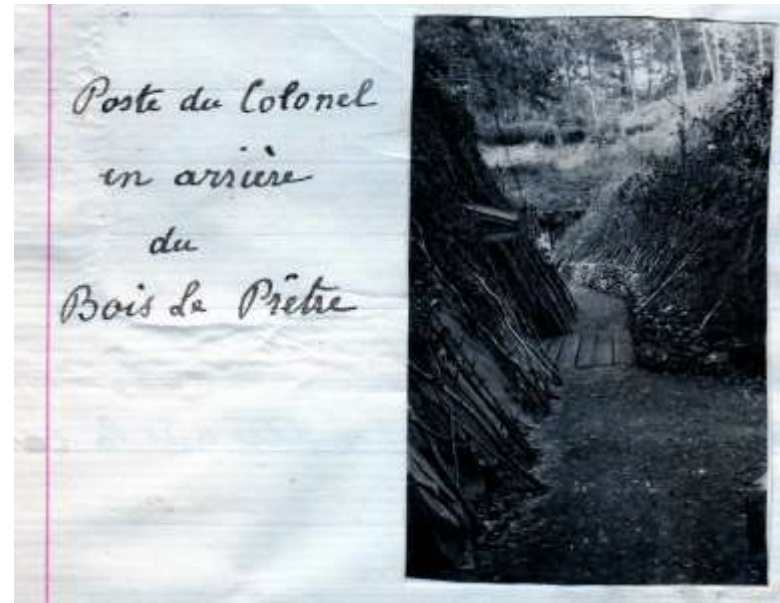 Poste du Colonel
en arrière
du
Bois Le Prêtre